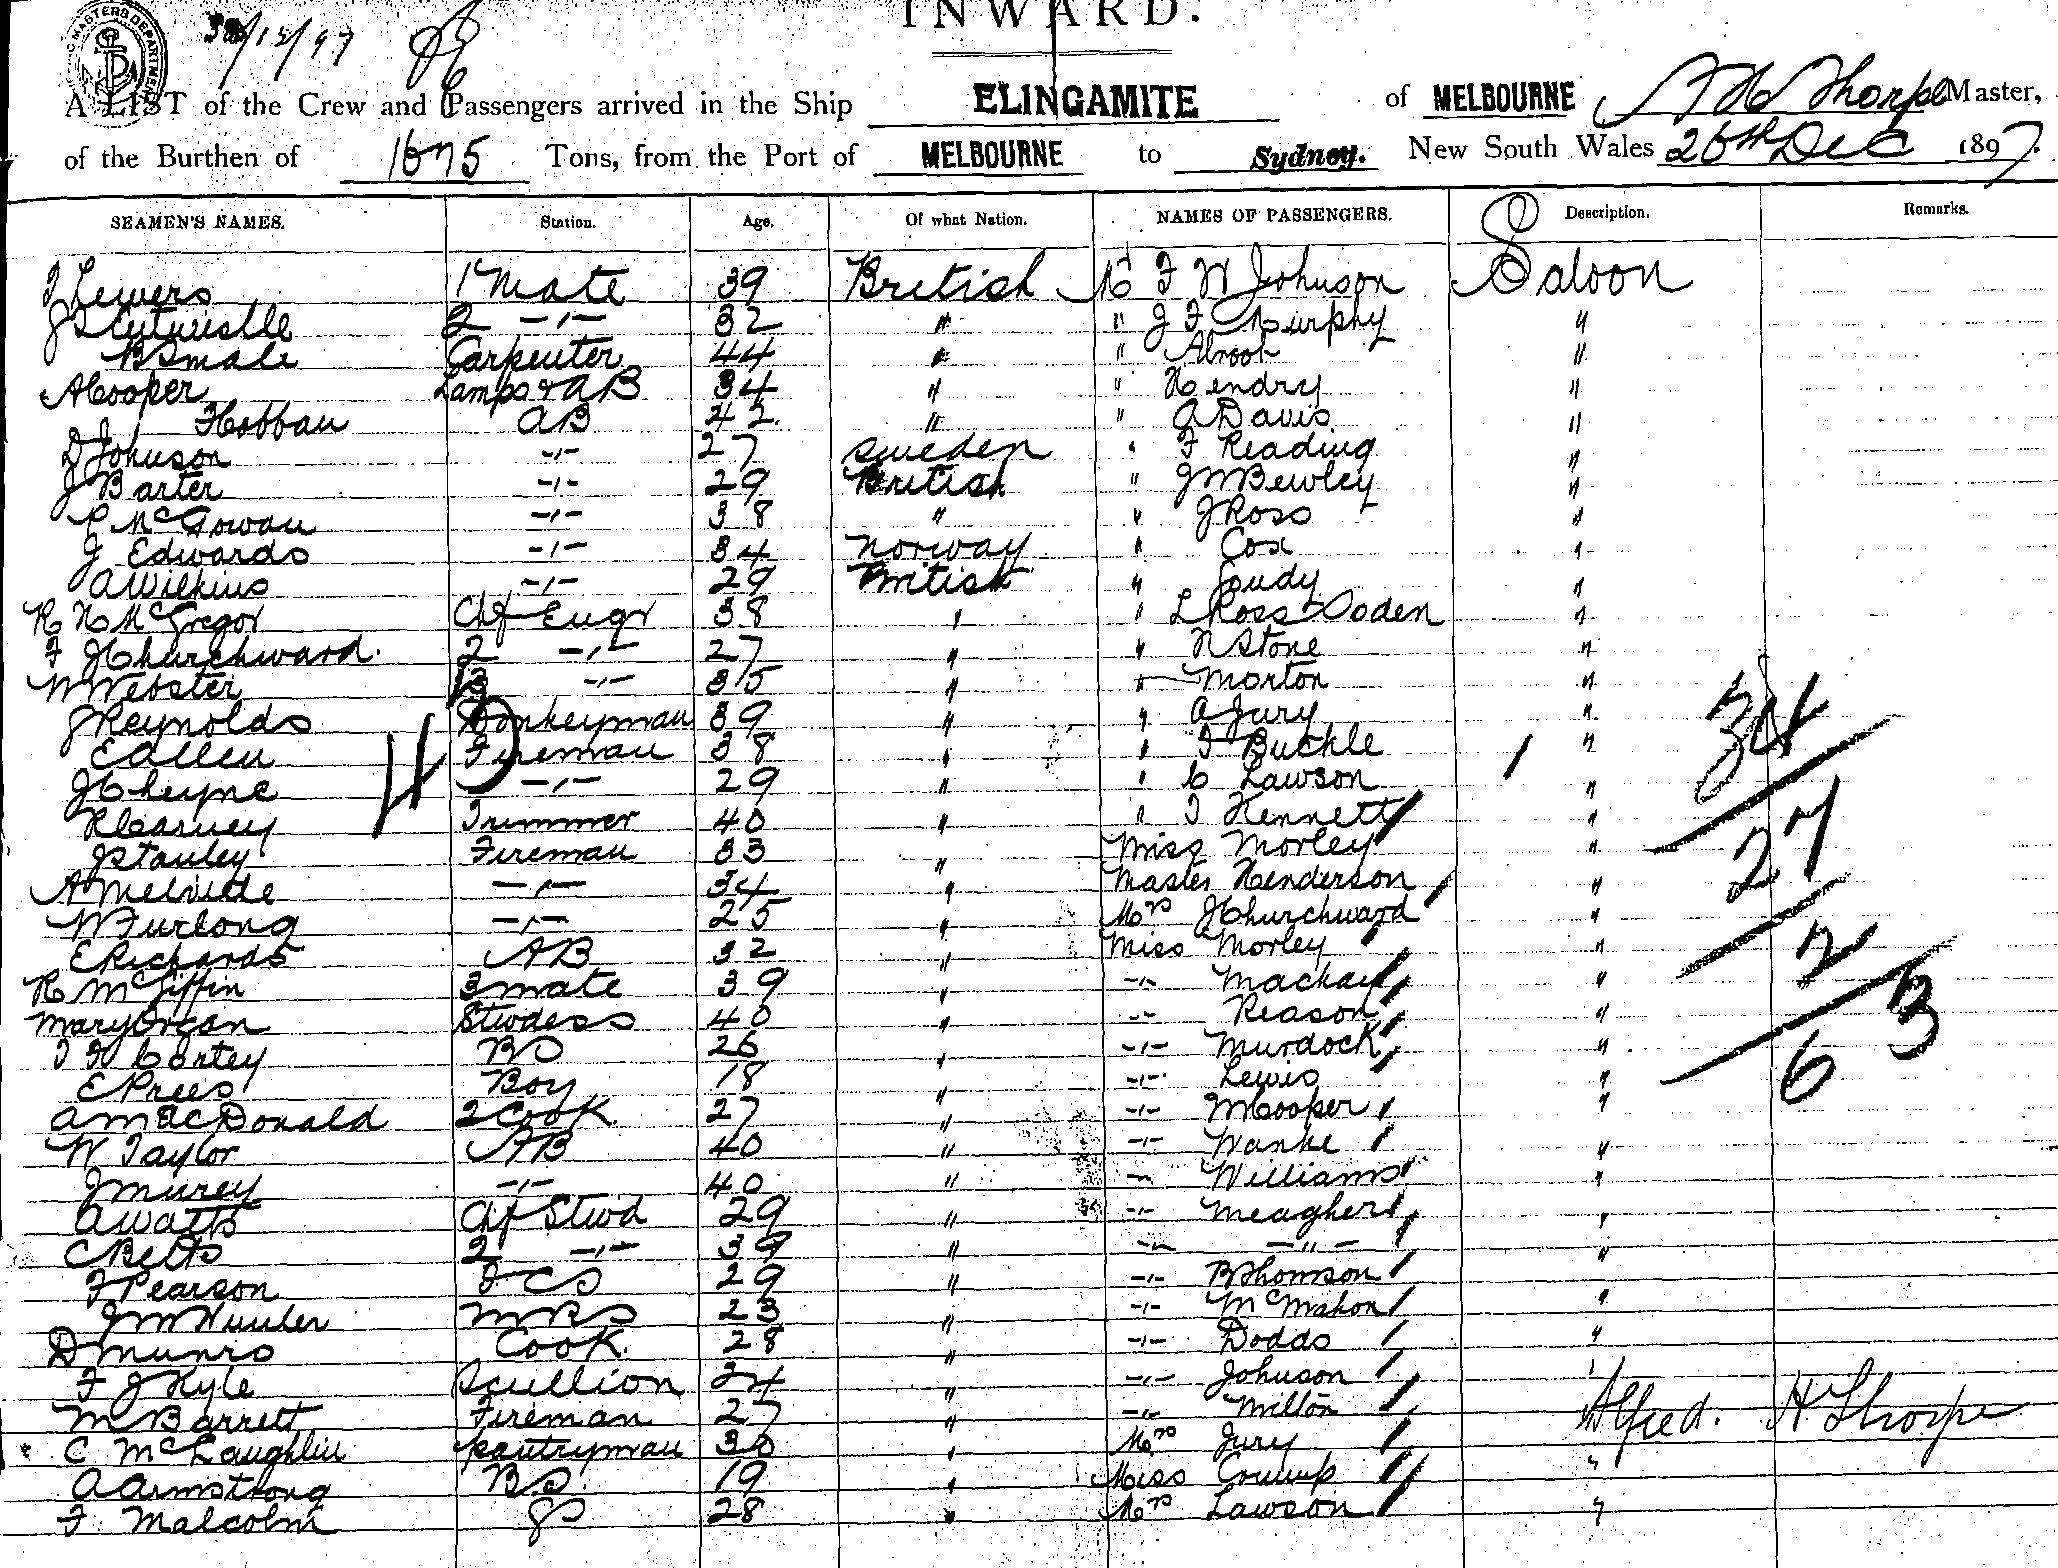 INWARD.
A LIST of the Crew and Passengers arrived in the Ship ELINGAMITE of MELBOURNE A H Thorpe Master,
of the Burthen of 1675 Tons, from the Port of MELBOURNE to Sydney. New South Wales 26th Dec 1897.
SEAMEN'S NAMES. Station. Age. Of what Nation. NAMES OF PASSENGERS. Description. Remarks.
Lewers 1 Mate 39 British Mr F W Johnson Saloon
J Entwistle 2 -"- 32 " " J F Murphy "
B Smale Carpenter 44 " " "
A Cooper Lamps & AB 34 " " Hendry "
Hobbau AB 42 " " A Davis "
D Johnson -"- 27 Sweden " F Reading "
J Barter -"- 29 British " J M Bewley "
McGowan -"- 38 " " J Ross "
J Edwards -"- 34 Norway " Cox "
A Wilkins -"- 29 British " "
R H McGregor Chf Engr 38 " " L Ross Soden "
F J Churchward. 2 -"- 27 " " N Stone "
W Webster 3 -"- 35 " " Morton "
J Reynolds Donkeyman 39 " " A Jury "
E Allen Fireman 38 " " T Buckle "
J Cheyne -"- 29 " " C Lawson "
R Carney Trimmer 40 " " T Kennett "
J Stanley Fireman 33 " Miss Morley "
A Melville -"- 34 " Master Henderson "
W Furlong -"- 25 " Mrs J Churchward "
E Richards AB 32 " Miss Morley "
R McGiffin 3 mate 39 " -"- Mackay "
Mary Stwdess 40 " -"- Reason "
Cortey BS 26 " -"- Murdock "
E Prees Boy 18 " -"- Lewis "
A MacDonald 2 Cook 27 " -"- M Cooper "
W Taylor AB 40 " -"- Wanke "
J Murey -"- 40 " -"- Williams "
A Watts Chf Stwd 29 " -"- Meagher "
C Betts 2 -"- 39 " -"- -"- "
F Pearson FCS 29 " -"- B Thomson "
J M Hunter MRS 23 " -"- McMahon "
D Munro Cook. 28 " -"- Dodds "
F J Kyle Scullion 24 " -"- Johnson "
M Barrett Fireman 27 " -"- Milton Alfred. H Thorpe
C McLaughlin pantryman 30 " Mrs Jury
A Armstrong B.S. 19 " Miss Crump "
F Malcolm 28 " Mrs Lawson "
34
27
2
63